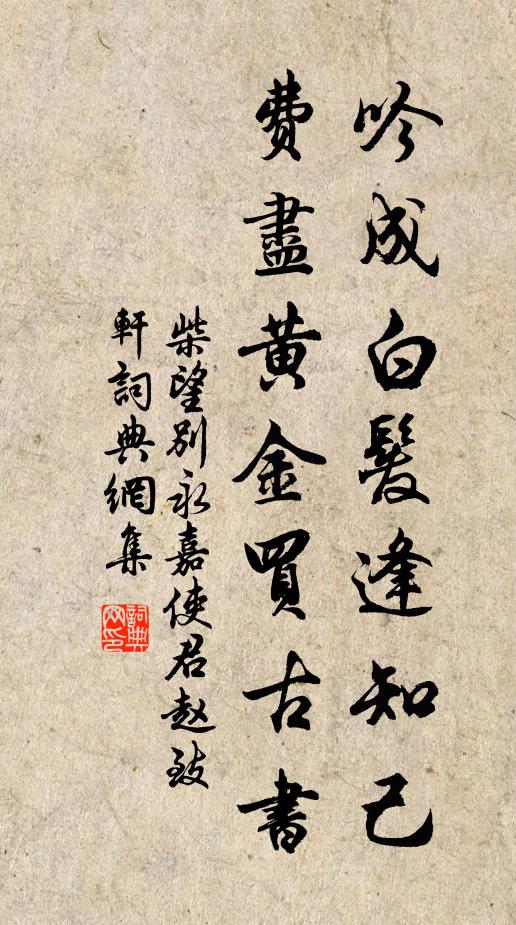 吟成白髮逢知己
費盡黃金買古書
柴望別永嘉使君赵致
軒詞典網集
詞典
网印